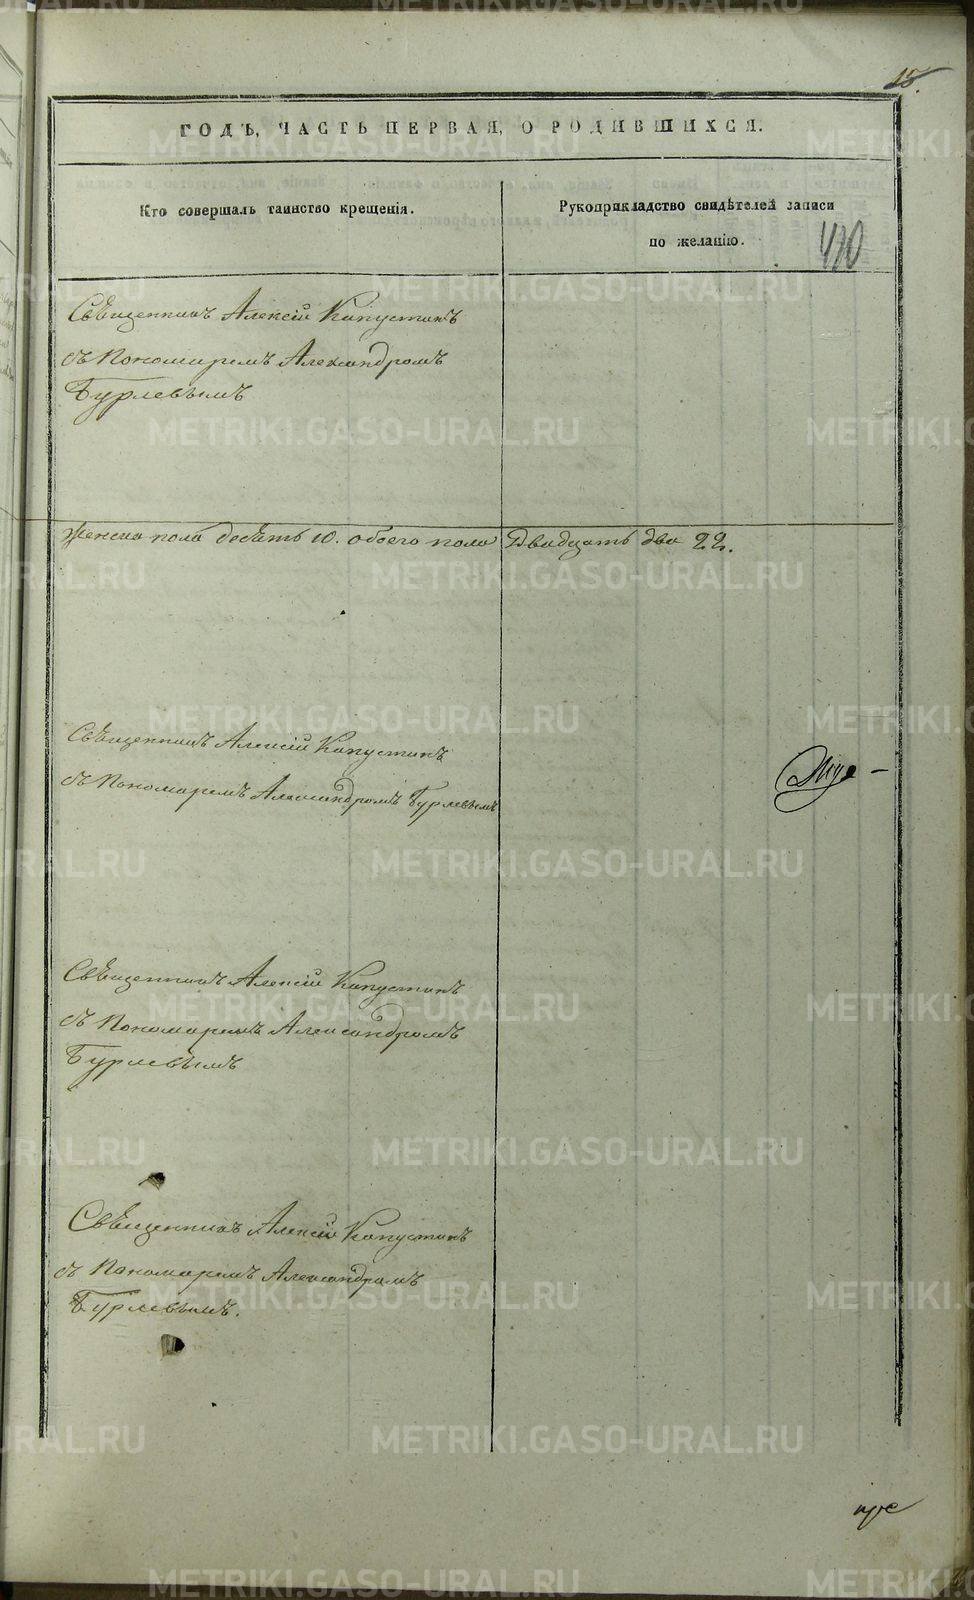 15.
ГОДЪ, ЧАСТЬ ПЕРВАЯ, О РОДИВШИХСЯ.
Кто совершалъ таинство крещенія.
Рукоприкладство свидѣтелей записи
по желанію.
410
Священникъ Алексій Капустинъ
съ Пономаремъ Александромъ
Бурлевымъ
Женска пола десять 10. обоего пола Двадцать два 22.
Священникъ Алексій Капустинъ
съ Пономаремъ Александромъ Бурлевымъ
Священникъ Алексій Капустинъ
съ Пономаремъ Александромъ
Бурлевымъ
Священникъ Алексій Капустинъ
съ Пономаремъ Александромъ
Бурлевымъ.
METRIKI.GASO-URAL.RU